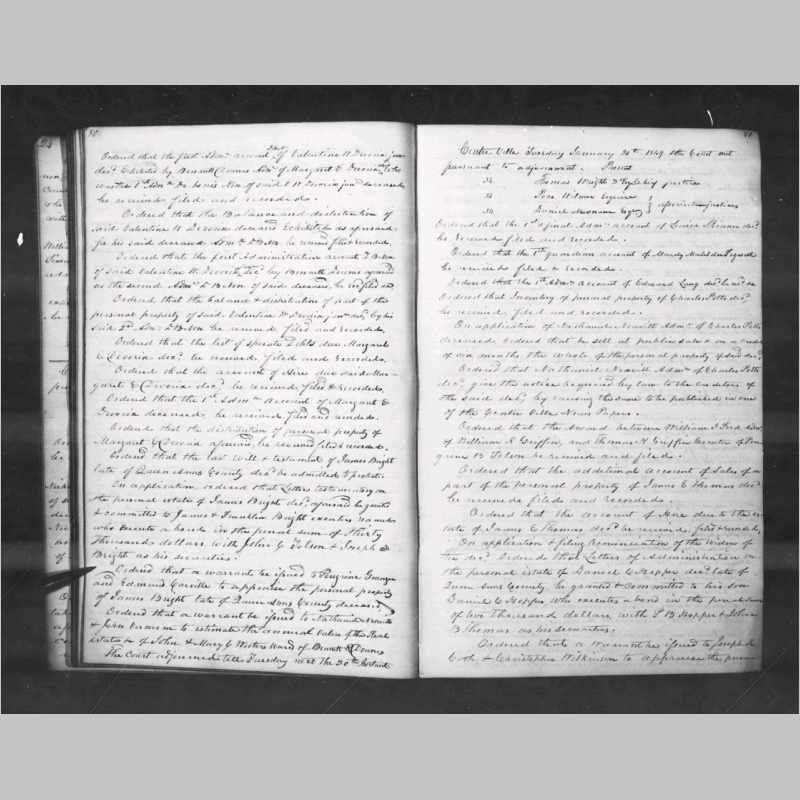 50
Ordered that the first Adm. account of Valentine W Devoia junr
dec. Exhibited by Bennett Downes Adm. of Margaret E Devoia, who
was the 1st Adm. De bonis Non of said V W Devoia junr deceased
be received filed and recorded.
Ordered that the Balance and distribution of
said Valentine W Devoia deceased Exhibited as aforesaid
for his said deceased Adm. D B Non be received filed & recorded.
Ordered that the first Administration account D B Non
of said Valentine W Devoia dec. by Bennett Downes aforesaid
as the second Adm. D B Non of said deceased, be recd filed &
Ordered that the balance & distribution of part of the
personal property of said Valentine W Devoia junr dec. by his
said 2d Adm. D B Non be received, filed and recorded,
Ordered that the list of sperate Debts due Margaret
E Devoia dec. be received filed and recorded.
Ordered that the account of Hire due said Mar-
garet E Devoia dec. be received, filed & recorded,
Ordered that the 1st Admn Account of Margaret E
Devoia deceased, be received filed and recorded.
Ordered that the distribution of personal property of
Margaret E Devoia aforesaid, be received filed & recorded.
Ordered that the last will & testament of James Bright
late of Queen Anns County dec. be admitted to probat.
On application, ordered that Letters testamentary on
the personal estate of James Bright dec. aforesaid be granted
& committed to James & Franklin Bright executors named
who Execute a bond in the penal sum of Thirty
Thousand dollars with John C Tolson & Joseph
Bright as his securities.
Ordered that a warrant be issued to Peregrine Granger
and Edmund Carville to appraise the personal property
of James Bright late of Queen Anns County deceased
Ordered that a warrant be issued to Nathaniel
& John to estimate the annual Value of the Real
estate of John & Mary C Westers ward of Bennett Downes
The Court adjourned till Tuesday next the 30th Instant
51
Centre Ville Tuesday January 30th 1849 the Court met
pursuant to adjournment. Present
Thomas Wright 3d Esq Chief justice
Pere Wilmer Esquire
Daniel Newnam Esqr } associate justices
Ordered that the 1st & final Adm. account of dec.
be received filed and recorded.
Ordered that the 1st guardian account of
be received filed & recorded.
Ordered that the 1st Adm. account of Edward Long dec. be recd
Ordered that Inventory of personal property of Charles Potts dec.
be received filed and recorded.
On application of Nathaniel Nevitt Adm. of Charles Potts
deceased ordered that he sell at publick sale & on a credit
of months the whole of the personal property of said dec.
Ordered that Nathaniel Nevitt Adm. of Charles Potts
dec. give the notice required by law to the creditors of
the said dec. by causing the same to be published in one
of the Centre Ville News Papers.
Ordered that the Award between William J Ford Adm.
of William R Griffin, and Thomas H Griffin Executor of Pere-
grine B be received and filed.
Ordered that the additional account of Sales of a
part of the personal property of James C Thomas dec.
be received filed and recorded.
Ordered that the account of Hire due to the es-
tate of James C Thomas dec. be received, filed & recorded,
On application & filing Renunciation of the Widow of
the dec. Ordered that Letters of Administration on
the personal estate of Daniel C Hopper dec. late of
Queen Anns County be granted & Committed to his son
Daniel C Hopper who executes a bond in the penal sum
of two thousand dollars with P B Hopper & John
B Thomas as his Securities.
Ordered that a Warrant be issued to Joseph
& Christopher Wilkinson to appraise the person